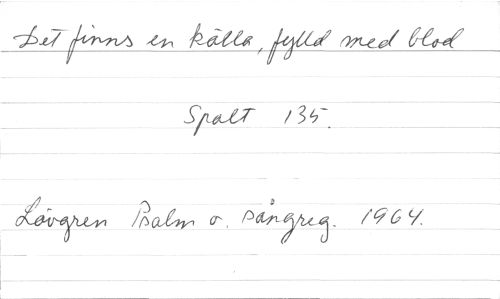 Det finns en källa, fylld med blod
Spalt 135.
Lövgren Psalm o. sångreg. 1964.